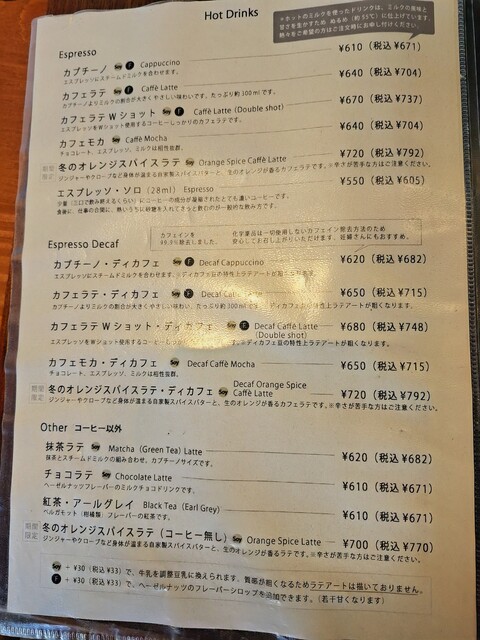 Hot Drinks
*ホットのミルクを使ったドリンクは、ミルクの風味と
甘さを生かすため ぬるめ（約55℃）に仕上げています
熱々をご希望の方はご注文時にお申し付けください。
Espresso
¥610（税込 ¥671）
カプチーノ Soy F Cappuccino
エスプレッソにスチームドミルクを合わせます。
¥640（税込 ¥704）
カフェラテ Soy F Caffè Latte
カプチーノよりミルクの割合が大きくやさしい味わいです。たっぷり約300mlです。
¥670（税込 ¥737）
カフェラテ W ショット Soy F Caffè Latte (Double shot)
エスプレッソをWショット使用するコーヒーしっかりのカフェラテです。
¥640（税込 ¥704）
カフェモカ Soy Caffè Mocha
チョコレート、エスプレッソ、ミルクは相性抜群。
¥720（税込 ¥792）
期間限定 冬のオレンジスパイスラテ Soy Orange Spice Caffè Latte
ジンジャーやクローブなど身体が温まる自家製スパイスバターと、生のオレンジが香るカフェラテです。※辛さが苦手な方はご注意ください。
¥550（税込 ¥605）
エスプレッソ・ソロ（28ml） Espresso
少量（三口で飲み終えるくらい）にコーヒーの成分が凝縮されたとても濃いコーヒーです。
食後に、仕事の合間に、熱いうちに砂糖を入れてさっと飲むのが一般的な飲み方です。
Espresso Decaf
カフェインを
99.9%除去しました。
化学薬品は一切使用しないカフェイン除去方法のため
安心してお召し上がりいただけます。妊婦さんにもおすすめ。
カプチーノ・ディカフェ Soy F Decaf Cappuccino ¥620（税込 ¥682）
エスプレッソにスチームドミルクを合わせます。※ディカフェ豆の特性上ラテアートが粗くなります。
カフェラテ・ディカフェ Soy F Decaf Caffè Latte ¥650（税込 ¥715）
カプチーノよりミルクの割合が大きくやさしい味わい。たっぷり約300ml ※ディカフェ豆の特性上ラテアートが粗くなります。
カフェラテ W ショット・ディカフェ Soy F Decaf Caffè Latte (Double shot) ¥680（税込 ¥748）
エスプレッソをWショット使用するコーヒーしっかり ※ディカフェ豆の特性上ラテアートが粗くなります。
カフェモカ・ディカフェ Soy Decaf Caffè Mocha ¥650（税込 ¥715）
チョコレート、エスプレッソ、ミルクは相性抜群。
期間限定 冬のオレンジスパイスラテ・ディカフェ Soy Decaf Orange Spice Caffè Latte ¥720（税込 ¥792）
ジンジャーやクローブなど身体が温まる自家製スパイスバターと、生のオレンジが香るカフェラテです。※辛さが苦手な方はご注意ください。
Other コーヒー以外
抹茶ラテ Soy Matcha (Green Tea) Latte ¥620（税込 ¥682）
抹茶とスチームドミルクの組み合わせ。カプチーノサイズです。
チョコラテ Soy Chocolate Latte ¥610（税込 ¥671）
ヘーゼルナッツフレーバーのミルクチョコドリンクです。
紅茶・アールグレイ Black Tea (Earl Grey) ¥610（税込 ¥671）
ベルガモット（柑橘類）フレーバーの紅茶です。
期間限定 冬のオレンジスパイスラテ（コーヒー無し） Soy Orange Spice Latte ¥700（税込 ¥770）
ジンジャーやクローブなど身体が温まる自家製スパイスバターと、生のオレンジが香るラテです。※辛さが苦手な方はご注意ください。
Soy + ¥30（税込 ¥33）で、牛乳を調整豆乳に換えられます。質感が粗くなるためラテアートは描いておりません。
F + ¥30（税込 ¥33）で、ヘーゼルナッツのフレーバーシロップを追加できます。（若干甘くなります）